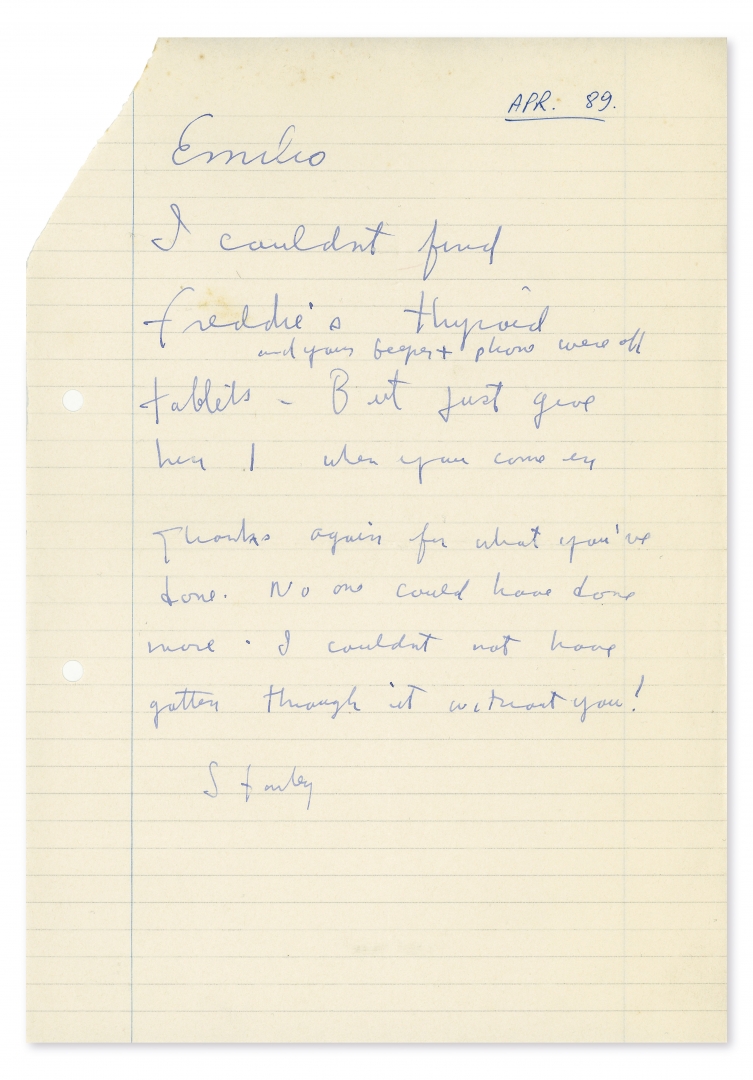 APR. 89.
Emilio
I couldnt find
Freddie's thyroid
and your beeper + phone were off
tablets - But just give
her 1 when you come in
Thanks again for what you've
done. No one could have done
more. I couldnt not have
gotten through it without you!
Stanley